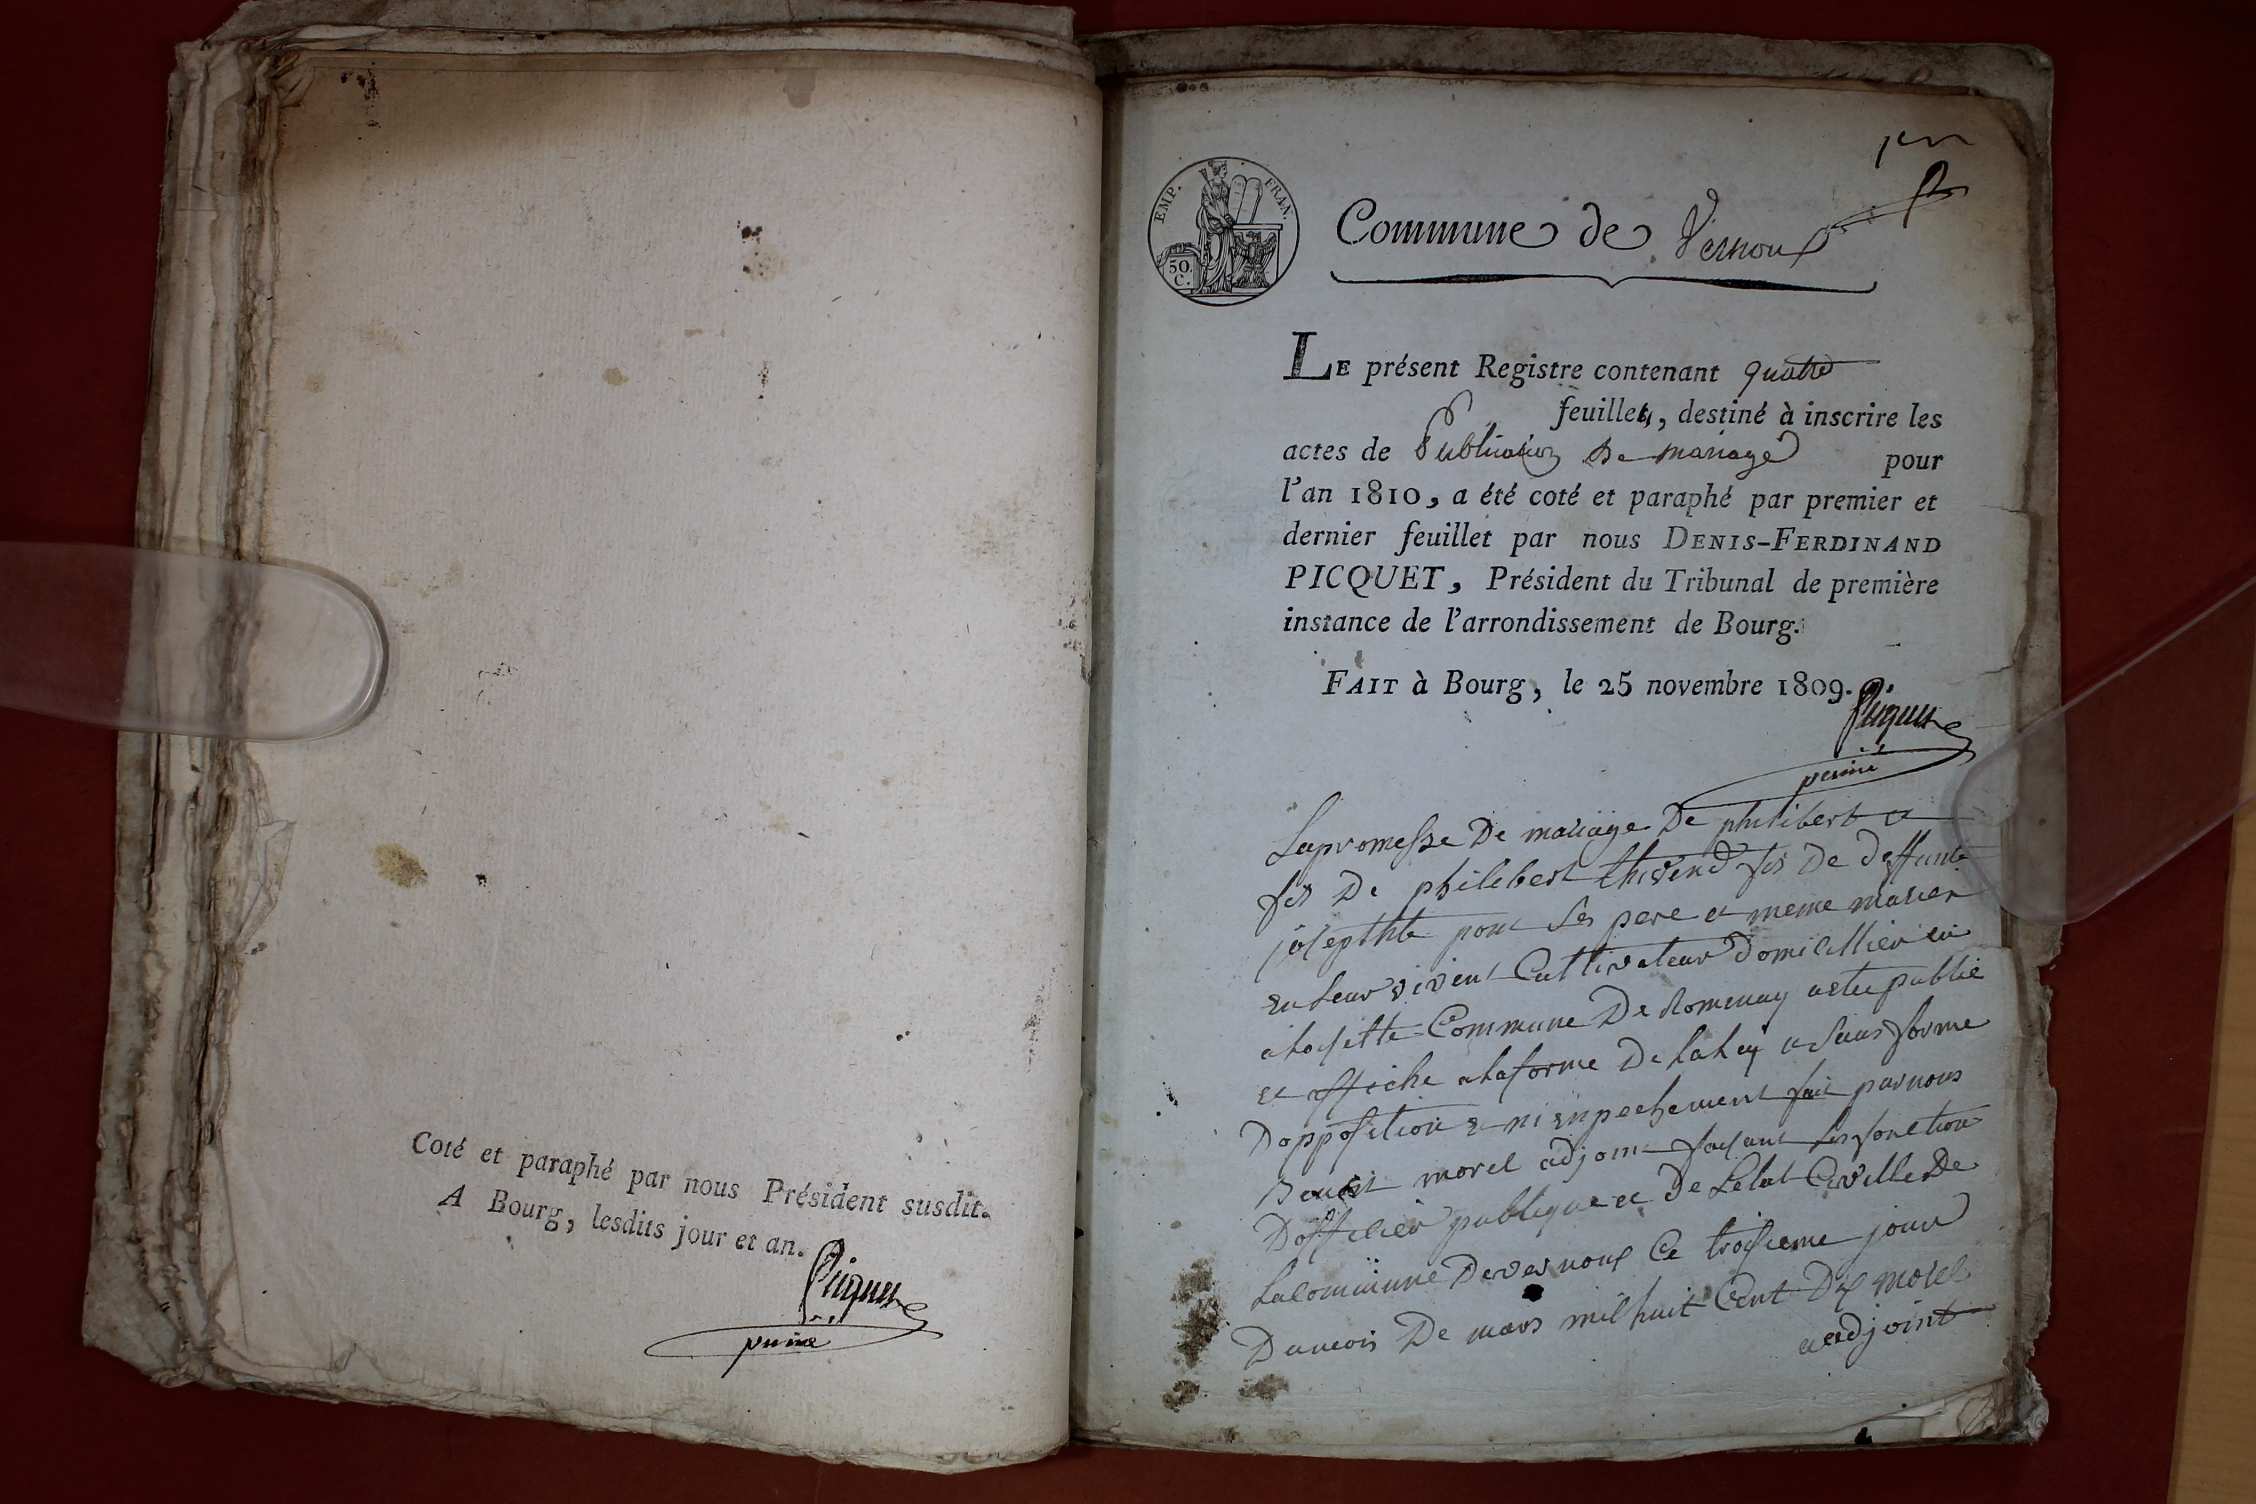 Coté et paraphé par nous Président susdit.
A Bourg, lesdits jour et an.
Picquet
1er
EMP. FRAN.
50. C.
Commune de Vernoux
LE présent Registre contenant quatre
feuillets, destiné à inscrire les
actes de Publication De mariage pour
l'an 1810, a été coté et paraphé par premier et
dernier feuillet par nous DENIS-FERDINAND
PICQUET, Président du Tribunal de première
instance de l'arrondissement de Bourg.
FAIT à Bourg, le 25 novembre 1809.
Picquet
Lapromesse De mariage De philibert
fis De philibert thivend fis De deffunte
josepthte pont Ses pere et meme
en leur vivent Cultivateur Domicillier
Commune De Romenay a etee publié
et affiche alaforme De laloy
Dopposition e ni enpechement fait parnous
Benoit morel adjoint faisant les fonction
Dofficier publique et De Letat Civille De
Lacommune Devernoux Ce troisieme jour
Dumois De mars mil huit Cent Dix morel
adjoint